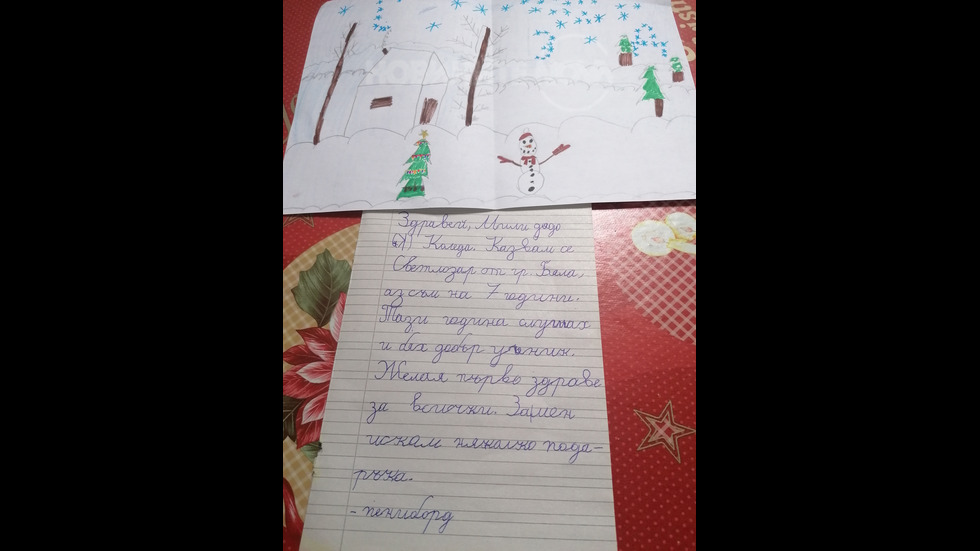 Здравей, Мили дядо
Коледа. Казвам се
Светлозар от гр. Бяла,
аз съм на 7 години.
Тази година слушах
и бях добър ученик.
Желая първо здраве
за всички. За мен
искам няколко пода-
ръка.
- пениборд